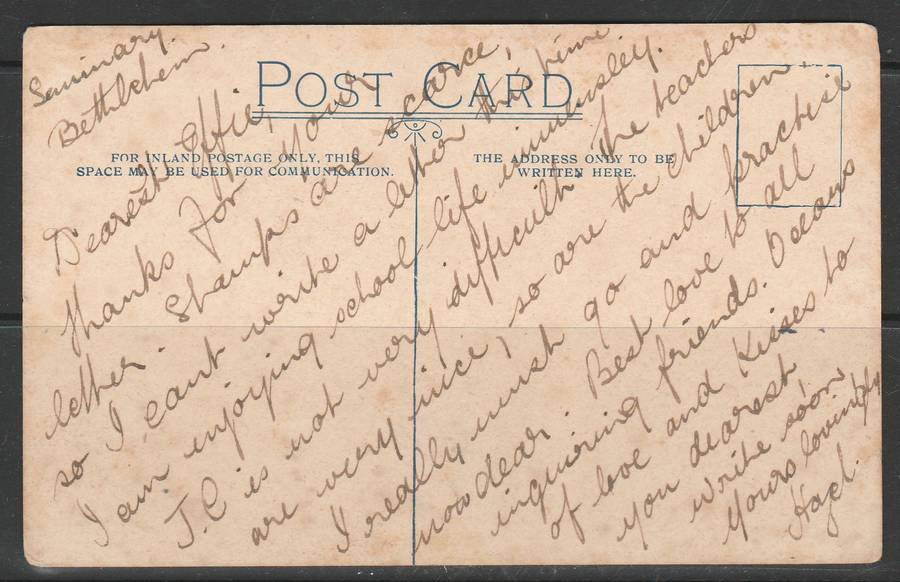 Seminary.
Bethlehem.
POST CARD
FOR INLAND POSTAGE ONLY, THIS
SPACE MAY BE USED FOR COMMUNICATION.
THE ADDRESS ONLY TO BE
WRITTEN HERE.
Dearest Effie,
Thanks for your
letter. Stamps are scarce,
so I can't write a letter this time
I am enjoying school life immensley.
J.C is not very difficult. The teachers
are very nice, so are the children
I really must go and practise
now dear. Best love to all
inquiring friends. Oceans
of love and Kisses to
you dearest,
write soon
Yours lovingly
Hazel.